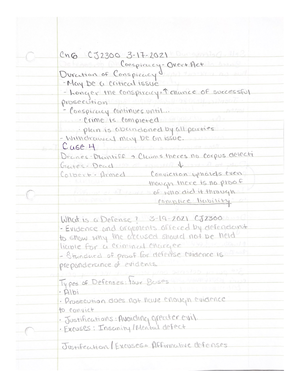 Ch6 CJ2300 3-17-2021
Conspiracy - Overt Act
Duration of Conspiracy
- May be a critical issue
- Longer the conspiracy ↑ chance of successful
prosecution
- Conspiracy continues until...
- Crime is completed
- plan is abandoned by all parties
- Withdrawal may be an issue.
Case 4
Claim theres no corpus delecti
↓
Conviction upholds even
though there is no proof
of who did it through
What is a Defense? CJ2300
- Evidence and arguments offered by defendant
to show why the accused should not be held
liable for a criminal charge
- Standard of proof for defense evidence is
preponderance of evidence
Types of Defenses: Four Boxes
- Albi
- Prosecution does not have enough evidence
to convict
- Justifications: Avoiding greater evil
- Excuses: Insanity/Mental defect
Justification/Excuses = Affirmative defenses